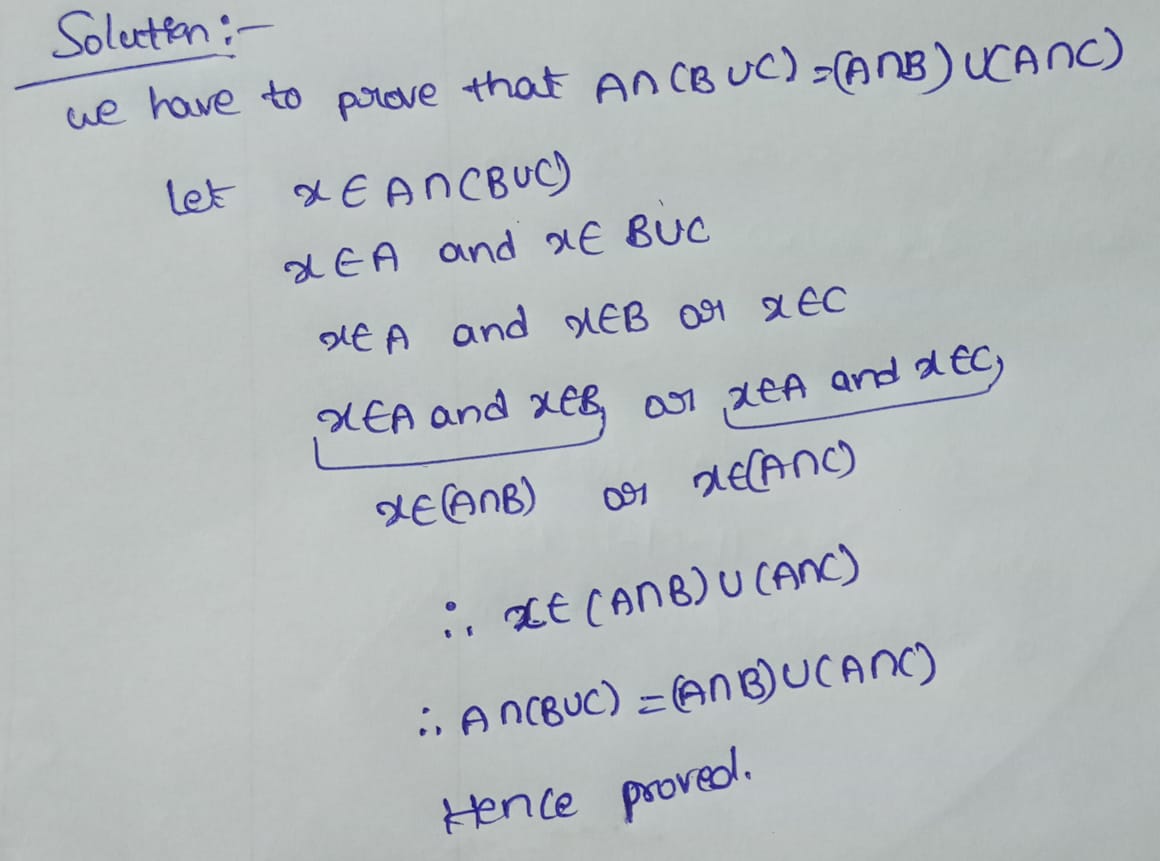 Solution :-
we have to prove that A∩(B∪C) =(A∩B)∪(A∩C)
Let x∈A∩(B∪C)
x∈A and x∈ B∪C
x∈A and x∈B or x∈C
x∈A and x∈B, or x∈A and x∈C,
x∈(A∩B) or x∈(A∩C)
∴ x∈(A∩B)∪(A∩C)
∴ A∩(B∪C) =(A∩B)∪(A∩C)
Hence proved.